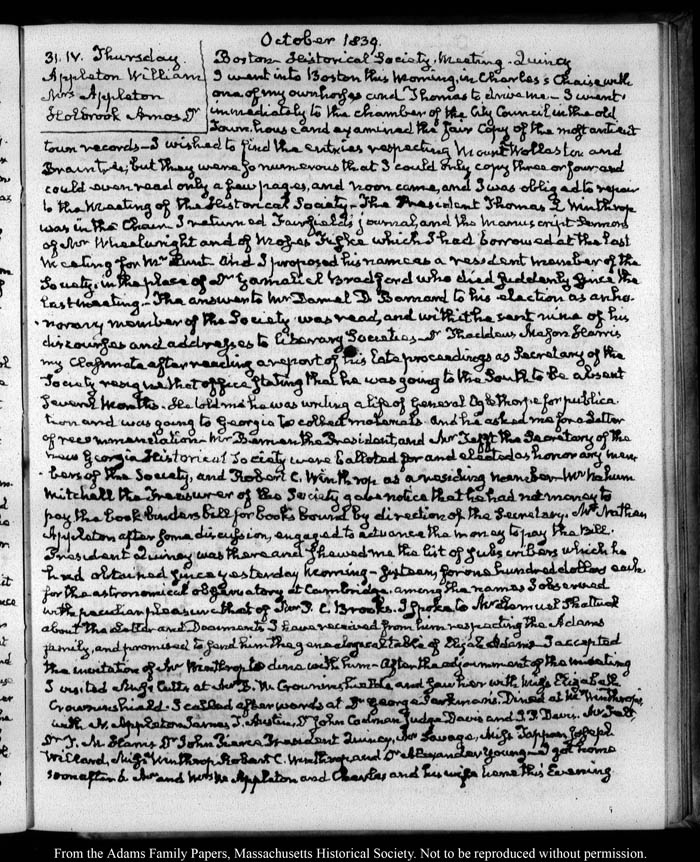 October 1839.
31. IV. Thursday.
Appleton William
Mrs Appleton
Holbrook Amos Dr
Boston - Historical Society, Meeting - Quincy
I went into Boston this morning, in Charles's Chaise with
one of my own horses and Thomas to drive me - I went
immediately to the chamber of the City Council in the old
Town house and examined the fair Copy of the most antient
town records - I wished to find the entries respecting Mount Wollaston and
Braintree; but they were so numerous that I could only copy three or four and
could even read only a few pages, and noon came, and I was obliged to repair
to the Meeting of the Historical Society - The President Thomas L. Winthrop
was in the Chair. I returned Fairfield's journal, and the Manuscript Sermons
of Mr Wheelwright and of Moses Fiske which I had borrowed at the last
Meeting for Mr Lunt. And I proposed his name as a resident member of the
Society, in the place of Dr Gamaliel Bradford who died suddenly since the
last meeting. - The answer to Mr Daniel D Barnard to his election as an ho-
norary member of the Society was read, and with it he sent nine of his
discourses and addresses to literary Societies - Dr Thaddeus Mason Harris
my Classmate after reading a report of his late proceedings as Secretary of the
Society resigned that office stating that he was going to the South to be absent
several Months. He told me he was writing a life of General Oglethorpe for publica
tion and was going to Georgia to collect materials. And he asked me for a Letter
of recommendation - Mr the President, and Mr Tefft the Secretary of the
new Georgia Historical Society were balloted for and elected as honorary mem
bers of the Society, and Robert C. Winthrop as a residing member - Mr Nahum
Mitchell the Treasurer of the Society gave notice that he had not money to
pay the book binders bill for books bound by direction of the Secretary. Mr Nathan
Appleton after some discussion, engaged to advance the money to pay the bill.
President Quincy was there and shewed me the list of subscribers which he
had obtained since yesterday morning - sixteen, for one hundred dollars each
for the astronomical observatory at Cambridge. among the names I observed
with peculiar pleasure that of Mr P. C. Brooks. I spoke to Mr Lemuel Shattuck
about the Letter and Documents I have received from him respecting the Adams
family, and promised to send him the genealogical table of Elizah Adams - I accepted
the invitation of Mr Winthrop to dine with him - After the adjournment of the meeting
I visited Miss Cutts at Mr B. W. Crowninshield's and saw her with Miss Elizabeth
Crowninshield. I called afterwards at Dr George Parkman's. Dined at Mr Winthrop's,
with N. Appleton James T. Austin, Dr John Codman Judge Davis and I. P. Davis. Mr Felt,
Dr T. M. Harris Dr John Pierce President Quincy, Mr Savage, Miss Tappan Joseph
Willard, Miss Winthrop Robert C. Winthrop and Dr Alexander Young - I got home
soon after 6 Mr and Mrs Appleton and Charles and his wife here this Evening.
From the Adams Family Papers, Massachusetts Historical Society. Not to be reproduced without permission.